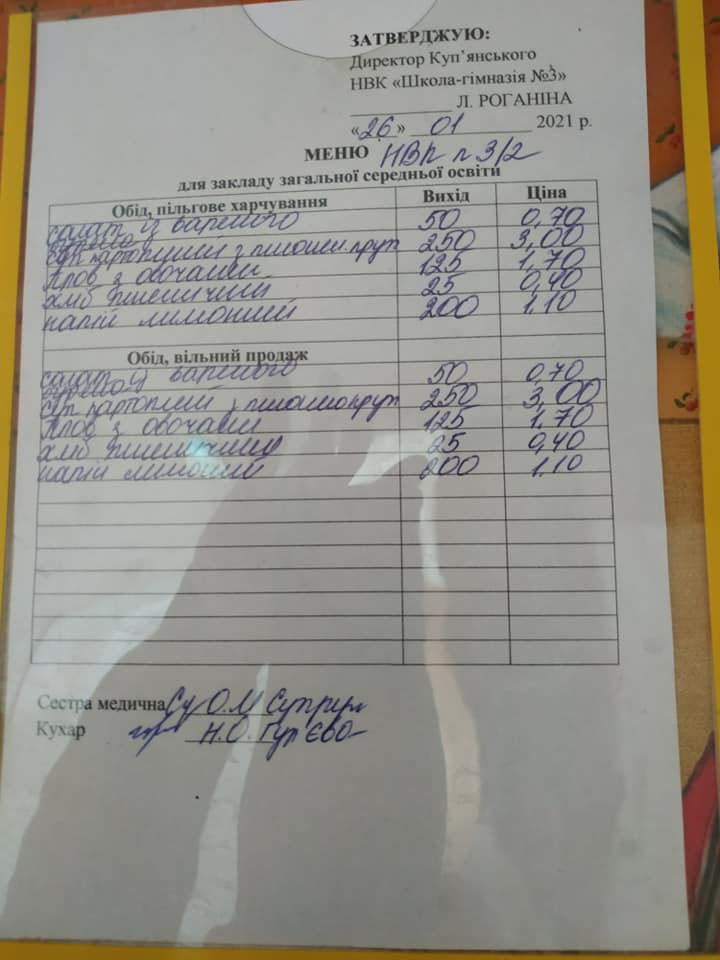 ЗАТВЕРДЖУЮ:
Директор Куп’янського
НВК «Школа-гімназія №3»
Л. РОГАНІНА
«26» 01 2021 р.
МЕНЮ НВК п 3/2
для закладу загальної середньої освіти
Обід, пільгове харчування Вихід Ціна
салат із вареного буряка 50 0,70
суп картоплний з пшоном.круп 250 3,00
Плов з овочами 125 1,70
хліб пшеничний 25 0,40
напій лимонний 200 1,10
Обід, вільний продаж
салат із вареного буряка 50 0,70
суп картоплний з пшоном.круп 250 3,00
Плов з овочами 125 1,70
хліб пшеничний 25 0,40
напій лимонний 200 1,10
Сестра медична О.М Супрун
Кухар Н.О. Гур'єва